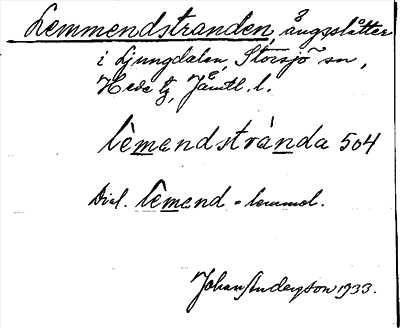 Lemmendstranden, ängsslåtter
i Ljungdalen, Storsjö sn,
Hede tg, Jämtl. l.
lèmendstrànda 504
Dial. lèmend = lemmel.
Johan Anderson 1933.